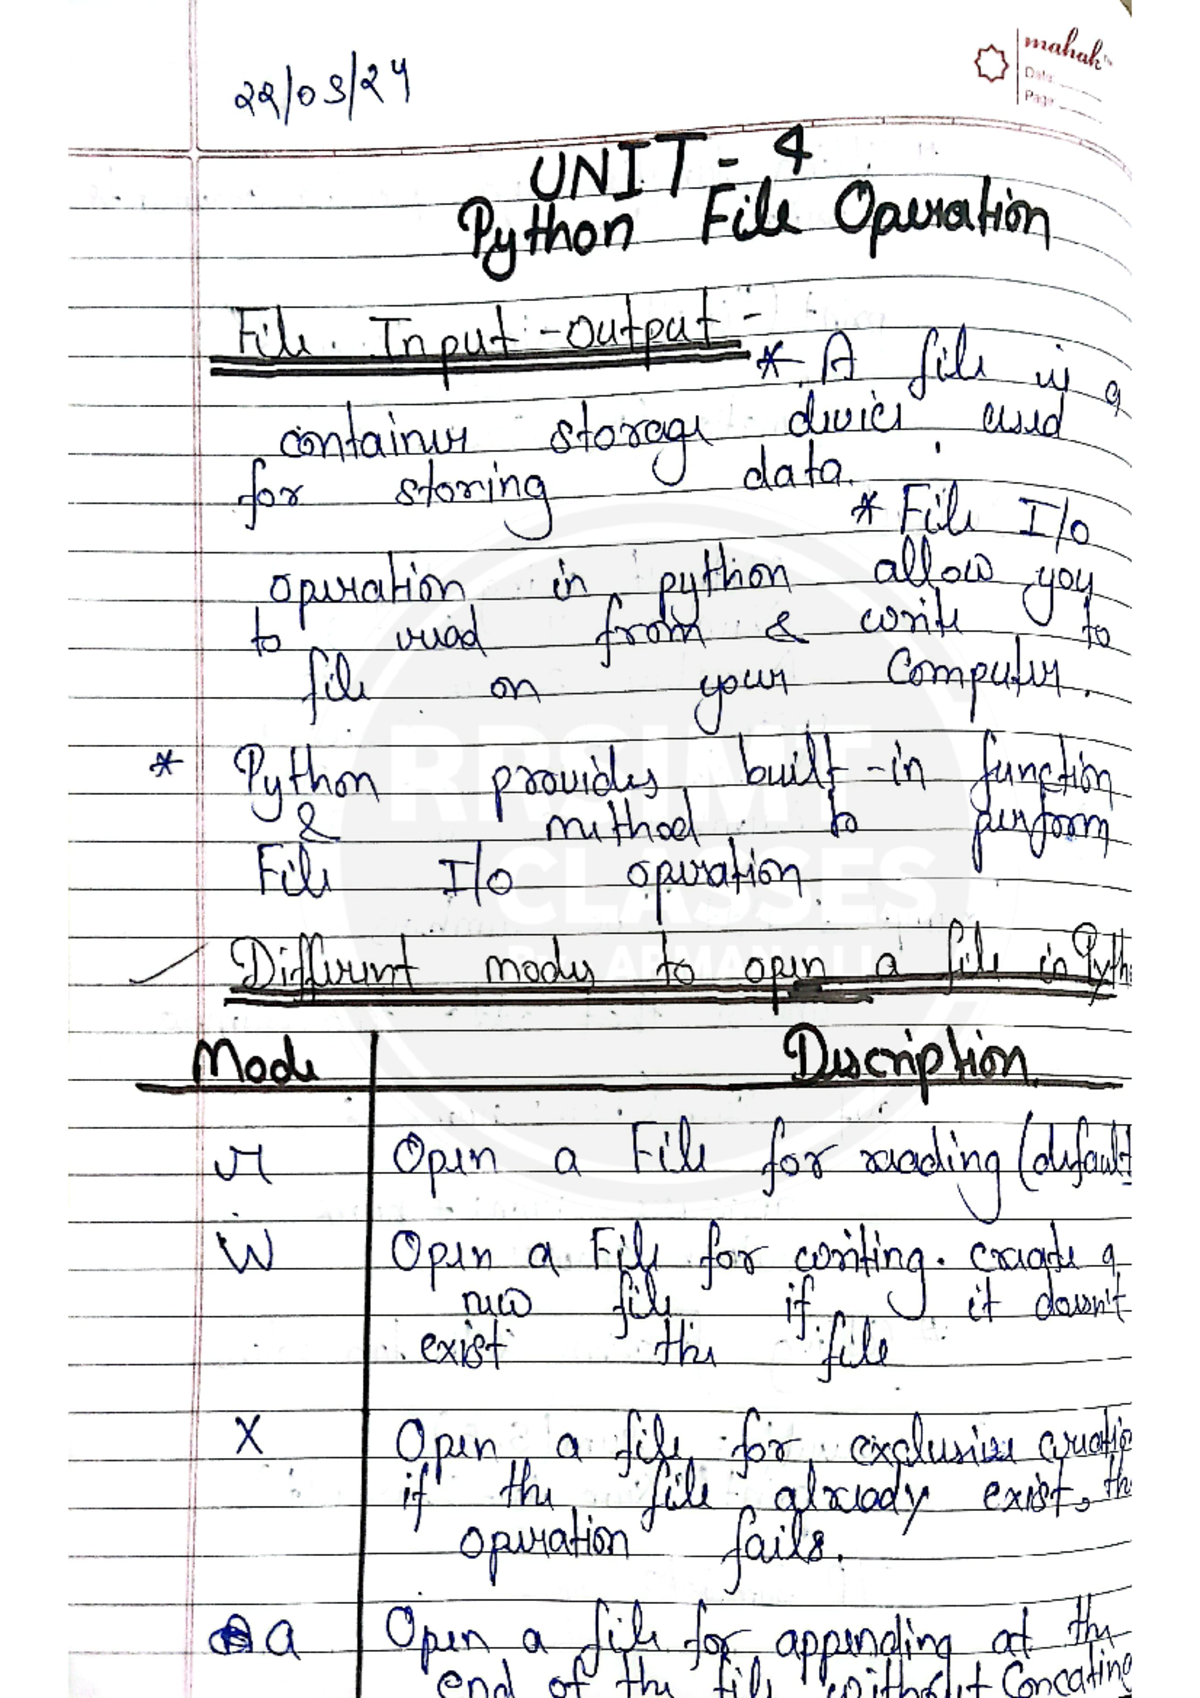 mahak
Date
Page
22/03/24
UNIT - 4
Python File Operation
File Input-output -
* A file is a
container storage device used
for storing data.
* File I/o
operation in python allow you
to read from & write to
file on your Computer.
* Python provides built-in function
& method to perform
File I/o operation.
Different modes to open a file in Pyth
Mode Description
r Open a File for reading (default
W Open a File for writing. create a
new file if it doesn't
exist the file
X Open a file for exclusive creatio
if the file already exist, th
operation fails.
a Open a file for appending at the
end of the file without Concating
RRSIMT
CLASSES
BY- ARMAN ALI